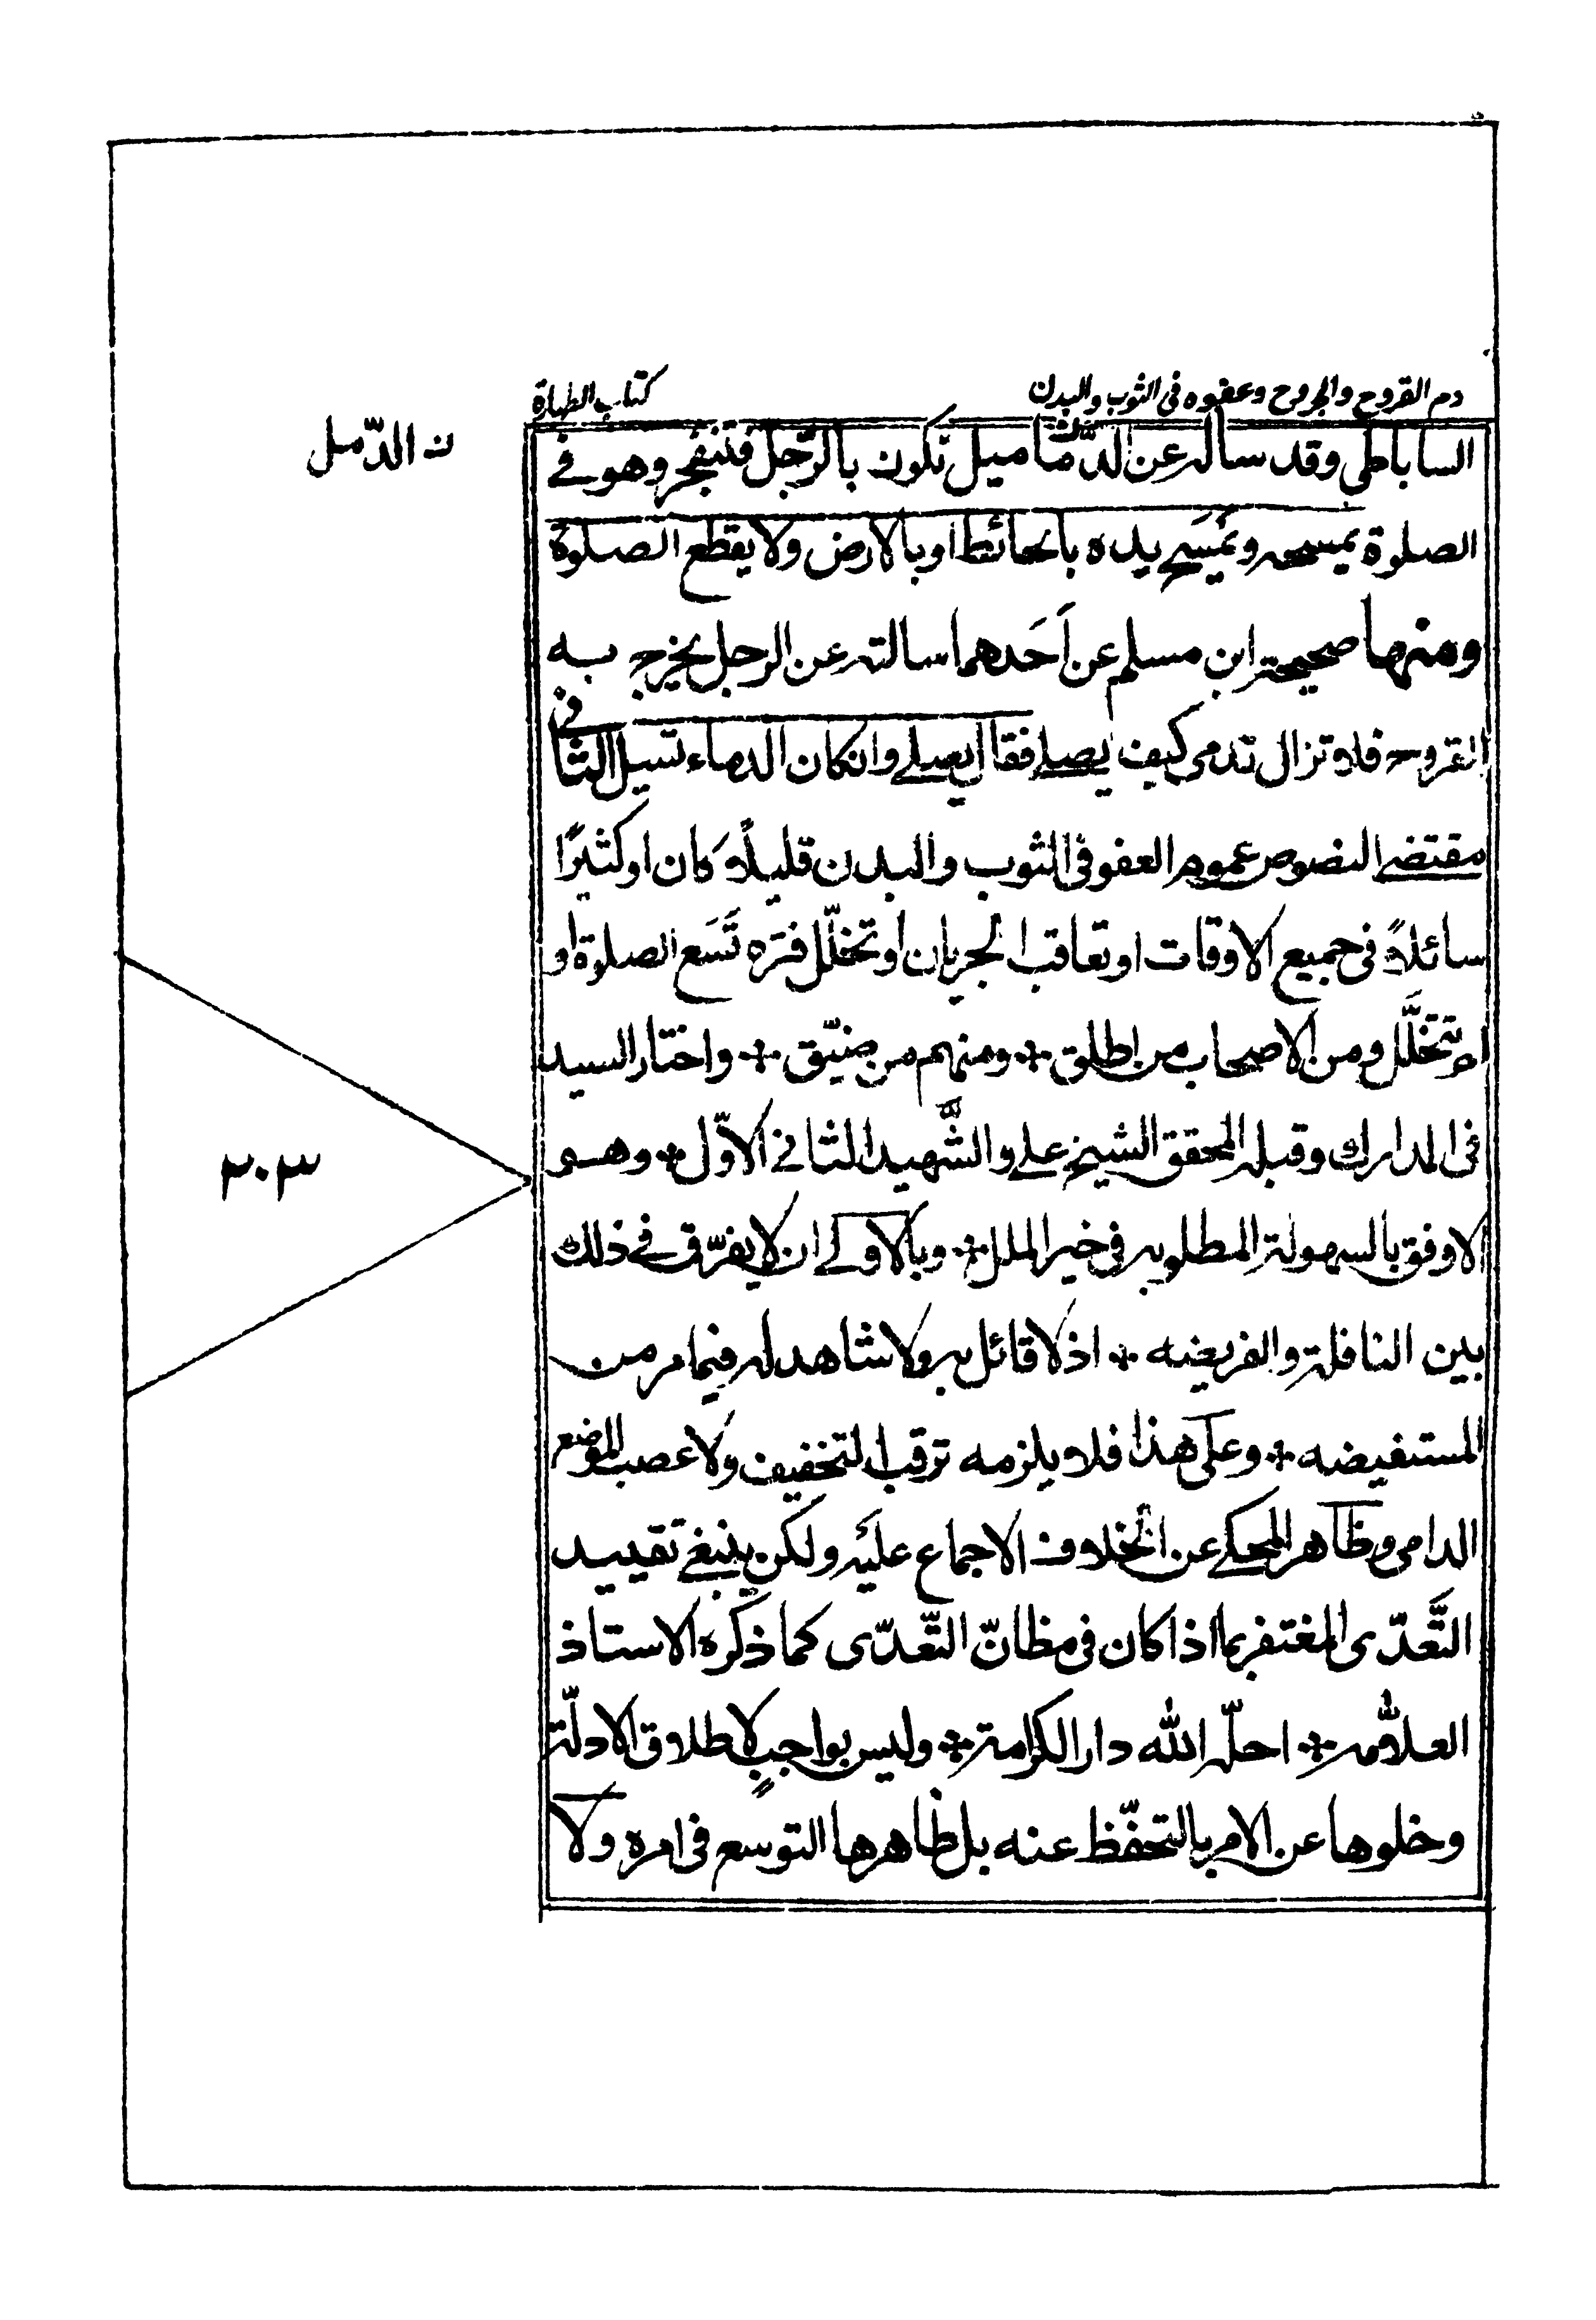 دم القروح والجروح وعفوه فى الثوب والبدن
كتاب الطهارة
ن الدّمل
الساباطى وقد ساله عن الدّماميل تكون بالرّجل فتنفجر وهو فے
الصلوة يمسحه ويمسَح يده بالحائط او بالارض ولا يقطع الصلوة
ومنها صحيحة ابن مسلم عن اَحَدهما سالته عن الرجل يخرج به
القروح فلا تزال تدمى كيف يصلے فقال يصلے وان كان الدماء تسيل الثانى
مقتضے النصوص عموم العفو فى الثوب والبدن قليلًا كان او كثيرًا
سائلاً فى جميع الاوقات او تعاقب الجريان او تخلّل فتره تَسَع الصلوة او
لم يتخلَّل ومن الاصحاب من اطلق ومنهم من ضيّق واختار السيد
فى المدارك وقبله المحقق الشيخ علے والشّهيد الثانے الاوّل وهو
الاوفق بالسهولة المطلوبه فى خير الملل وبالاولے ان لا يفرّق فے ذلك
بين النافلة والفريضه اذ لا قائل به ولا شاهد له فيما مر من
المستفيضه وعلى هذا فلا يلزمه ترقب التخفيف ولا عصب الموضع
الدامى وظاهر المحكے عن الخلاف الاجماع عليه ولكن ينبغے تقييد
التَّعدّى المغتفر بما اذا كان فى مظانّ التّعدّى كما ذكره الاستاذ
العلاّمه احلّه الله دار الكرامة وليس بواجبٍ لاطلاق الادلّة
وخلوها عن الامر بالتحفّظ عنه بل ظاهرها التوسع فى امره ولا
٣٠٣